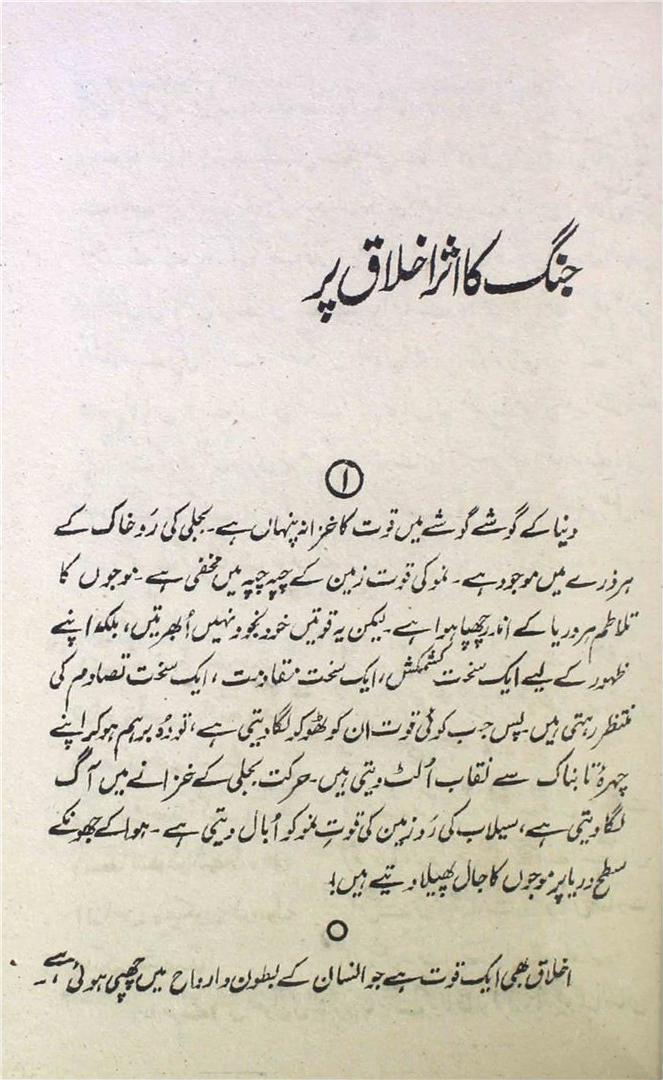 جنگ کا اثر اخلاق پر
۱
دنیا کے گوشے گوشے میں قوت کا خزانہ پنہاں ہے۔ بجلی کی رَو خاک کے
ہر ذرے میں موجود ہے۔ نمو کی قوت زمین کے چپہ چپہ میں مخفی ہے۔ موجوں کا
تلاطم ہر دریا کے اندر چھپا ہوا ہے۔ لیکن یہ قوتیں خود بخود نہیں اُبھرتیں، بلکہ اپنے
ظہور کے لیے ایک سخت کشمکش، ایک سخت مقاومت، ایک سخت تصادم کی
منتظر رہتی ہیں۔ پس جب کوئی قوت ان کو ٹھوکر لگا دیتی ہے، تو وہ برہم ہو کر اپنے
چہرۂ تابناک سے نقاب اُلٹ دیتی ہیں۔ حرکت بجلی کے خزانے میں آگ
لگا دیتی ہے، سیلاب کی رَو زمین کی قوتِ نمو کو اُبال دیتی ہے۔ ہوا کے جھونکے
سطح دریا پر موجوں کا جال پھیلا دیتے ہیں!
اخلاق بھی ایک قوت ہے جو انسان کے بطون و ارواح میں چھپی ہوئی ہے۔